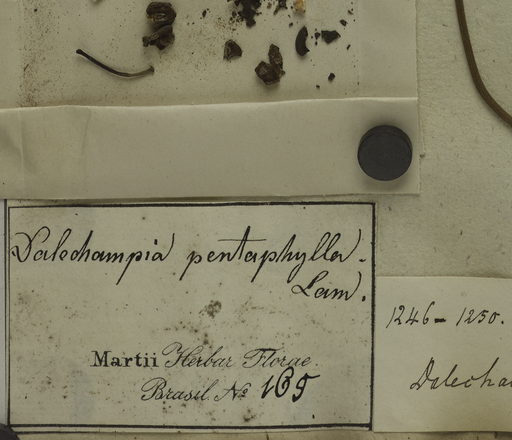 Dalechampia pentaphylla.
Lam.
Martii Herbar. Florae
Brasil. No 165
1246 - 1250.
Dalecha